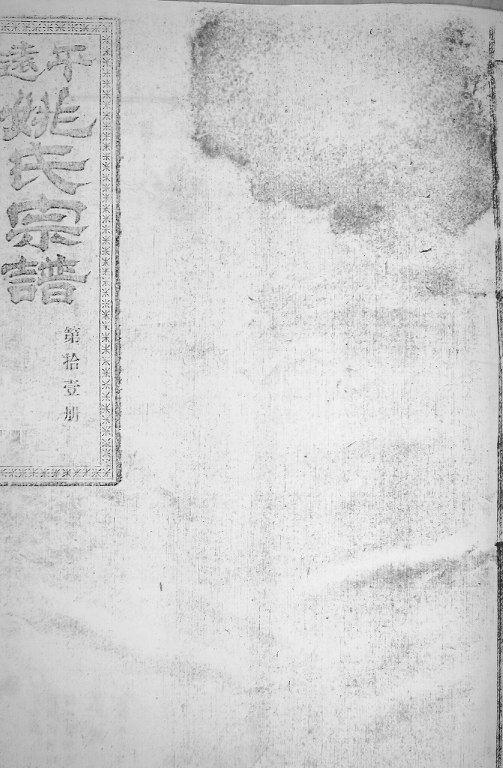 平遠
姚氏宗譜
第拾壹册